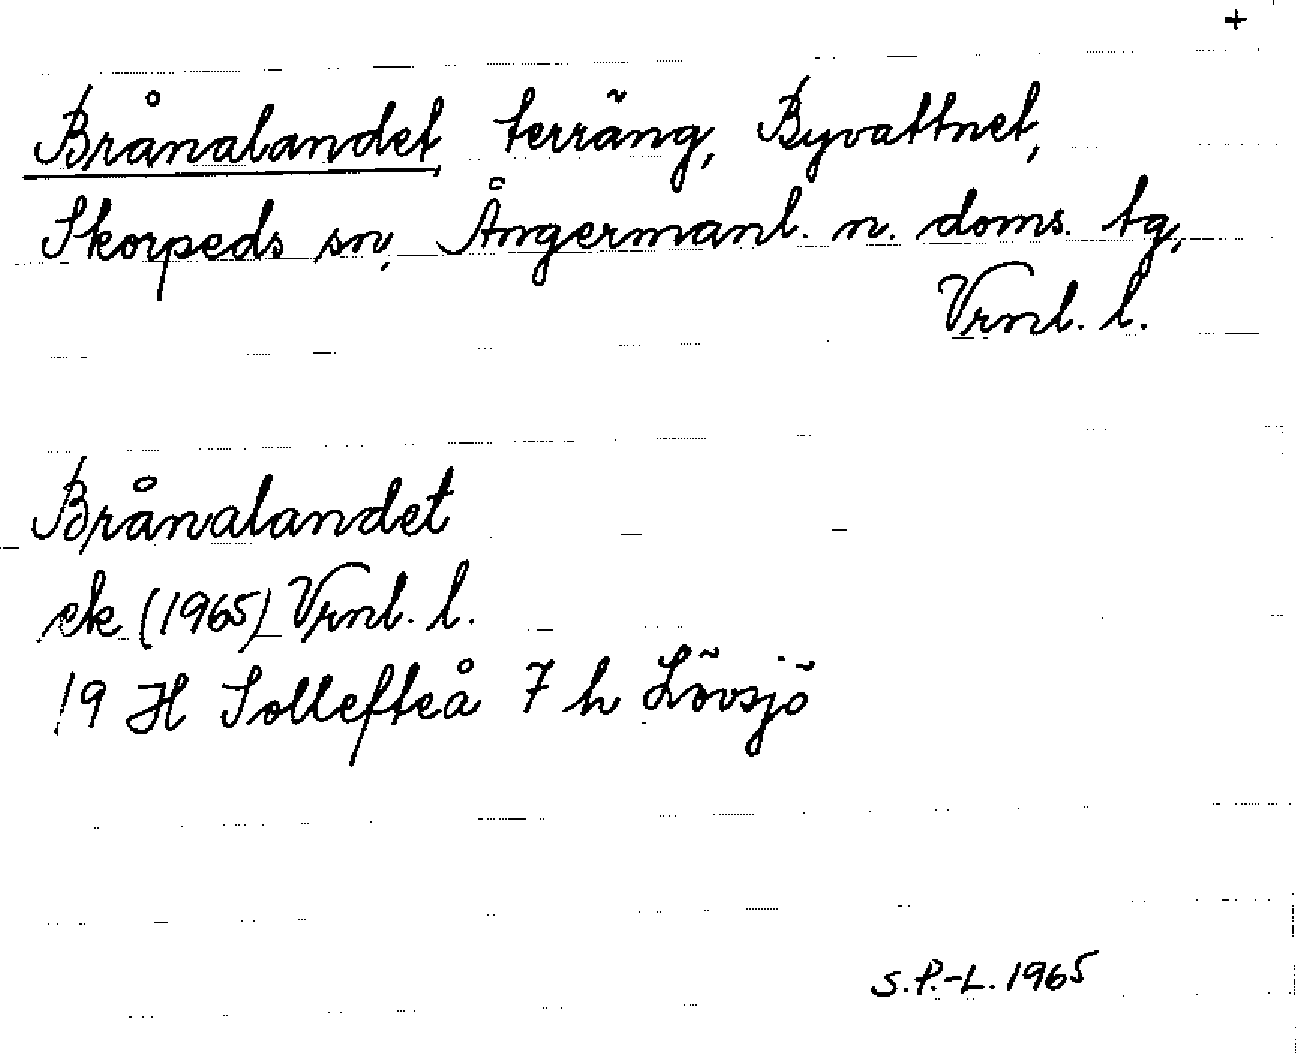 +
Brånalandet, terräng, Byvattnet,
Skorpeds sn, Ångermanl. n. doms. tg,
Vrnl. l.
Brånalandet
ek (1965) Vrnl. l.
19 H Sollefteå 7 h Lövsjö
S.P.-L. 1965